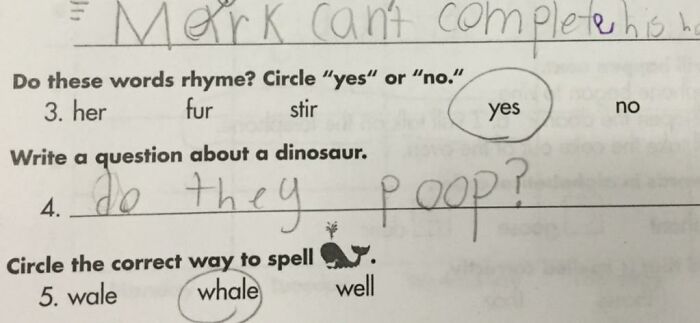 Mark can't complete his
Do these words rhyme? Circle “yes“ or “no.”
3. her fur stir yes no
Write a question about a dinosaur.
4. do they poop?
Circle the correct way to spell .
5. wale whale well